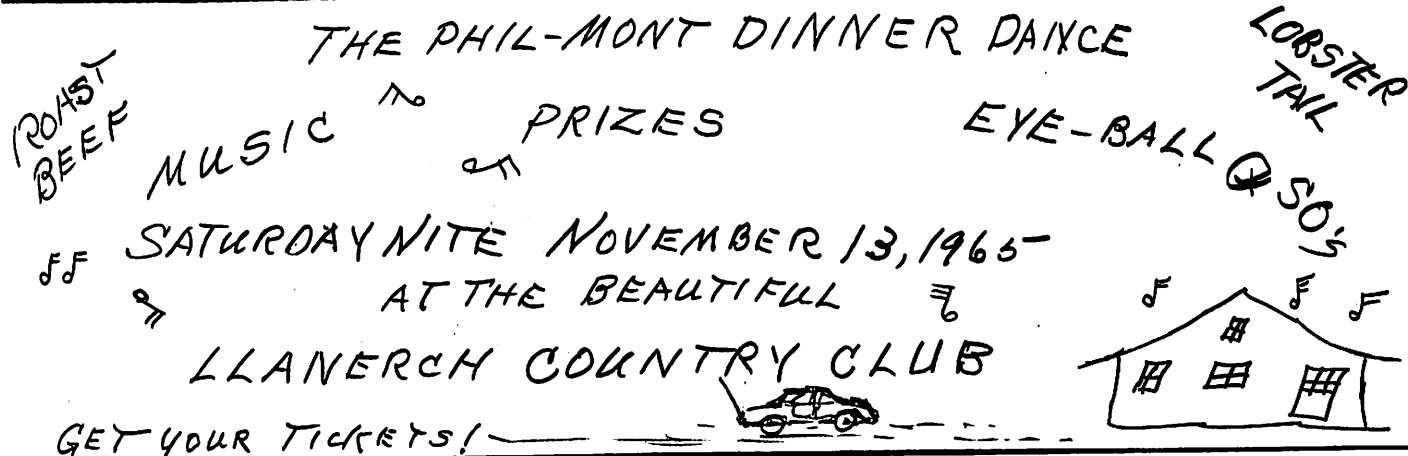 THE PHIL-MONT DINNER DANCE
LOBSTER
TAIL
ROAST
BEEF
MUSIC
PRIZES
EYE-BALL QSO'S
SATURDAY NITE NOVEMBER 13, 1965
AT THE BEAUTIFUL
LLANERCH COUNTRY CLUB
GET YOUR TICKETS!